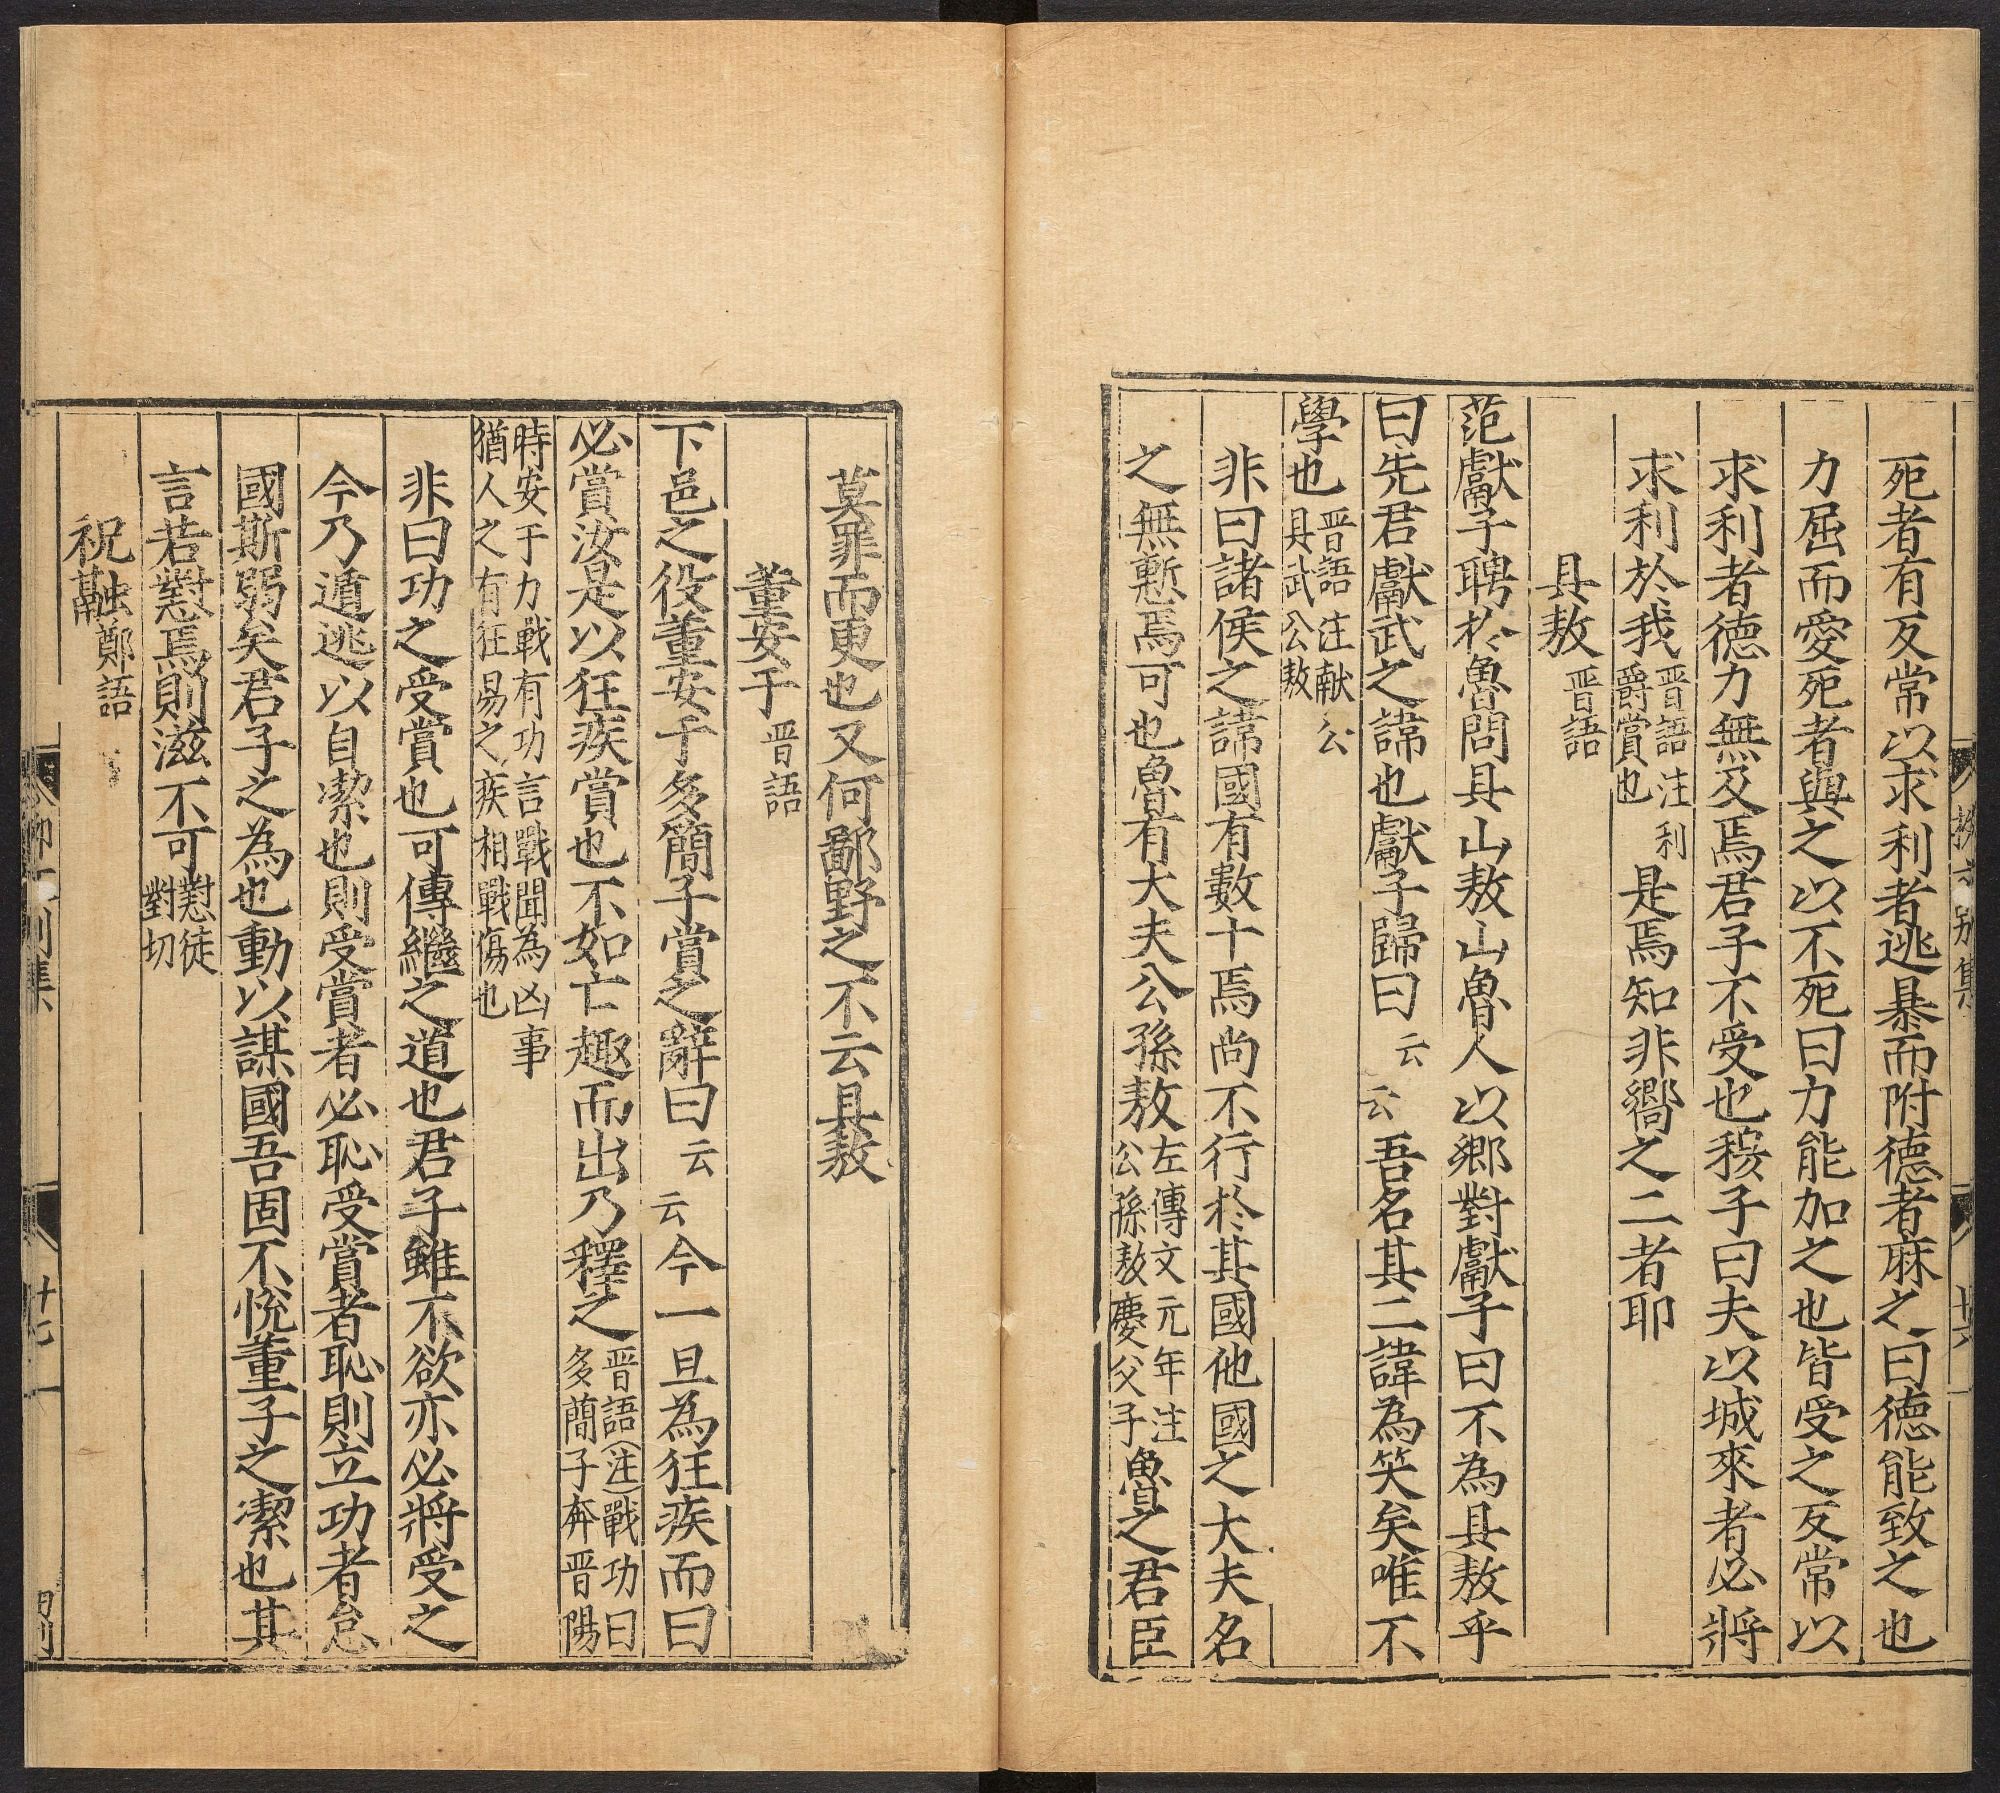 死者有反常以求利者逃暴而附德者庥之曰德能致之也
力屈而愛死者與之以不死曰力能加之也皆受之反常以
求利者德力無及焉君子不受也穆子曰夫以城來者必將
求利於我晋語注利爵賞也是焉知非嚮之二者耶
具敖晋語
范獻子聘於魯問具山敖山魯人以郷對獻子曰不為具敖乎
曰先君獻武之諱也獻子歸曰云云吾名其二諱為笑矣唯不
學也晋語注献公具武公敖
非曰諸侯之諱國有數十焉尚不行於其國他國之大夫名
之無慙焉可也魯有大夫公孫敖左傳文元年注公孫敖慶父子魯之君臣
莫罪而更也又何鄙野之不云具敖
董安于晋語
下邑之役董安于多簡子賞之辭曰云云今一旦為狂疾而曰
必賞汝是以狂疾賞也不如亡趣而出乃釋之晋語(注)戰功曰多簡子奔晋陽
時安于力戰有功言戰聞為凶事猶人之有狂易之疾相戰傷也
非曰功之受賞也可傳繼之道也君子雖不欲亦必將受之
今乃遁逃以自潔也則受賞者必恥受賞者恥則立功者怠
國斯弱矣君子之為也動以謀國吾固不悅董子之潔也其
言若懟焉則滋不可懟徒對切
祝融鄭語